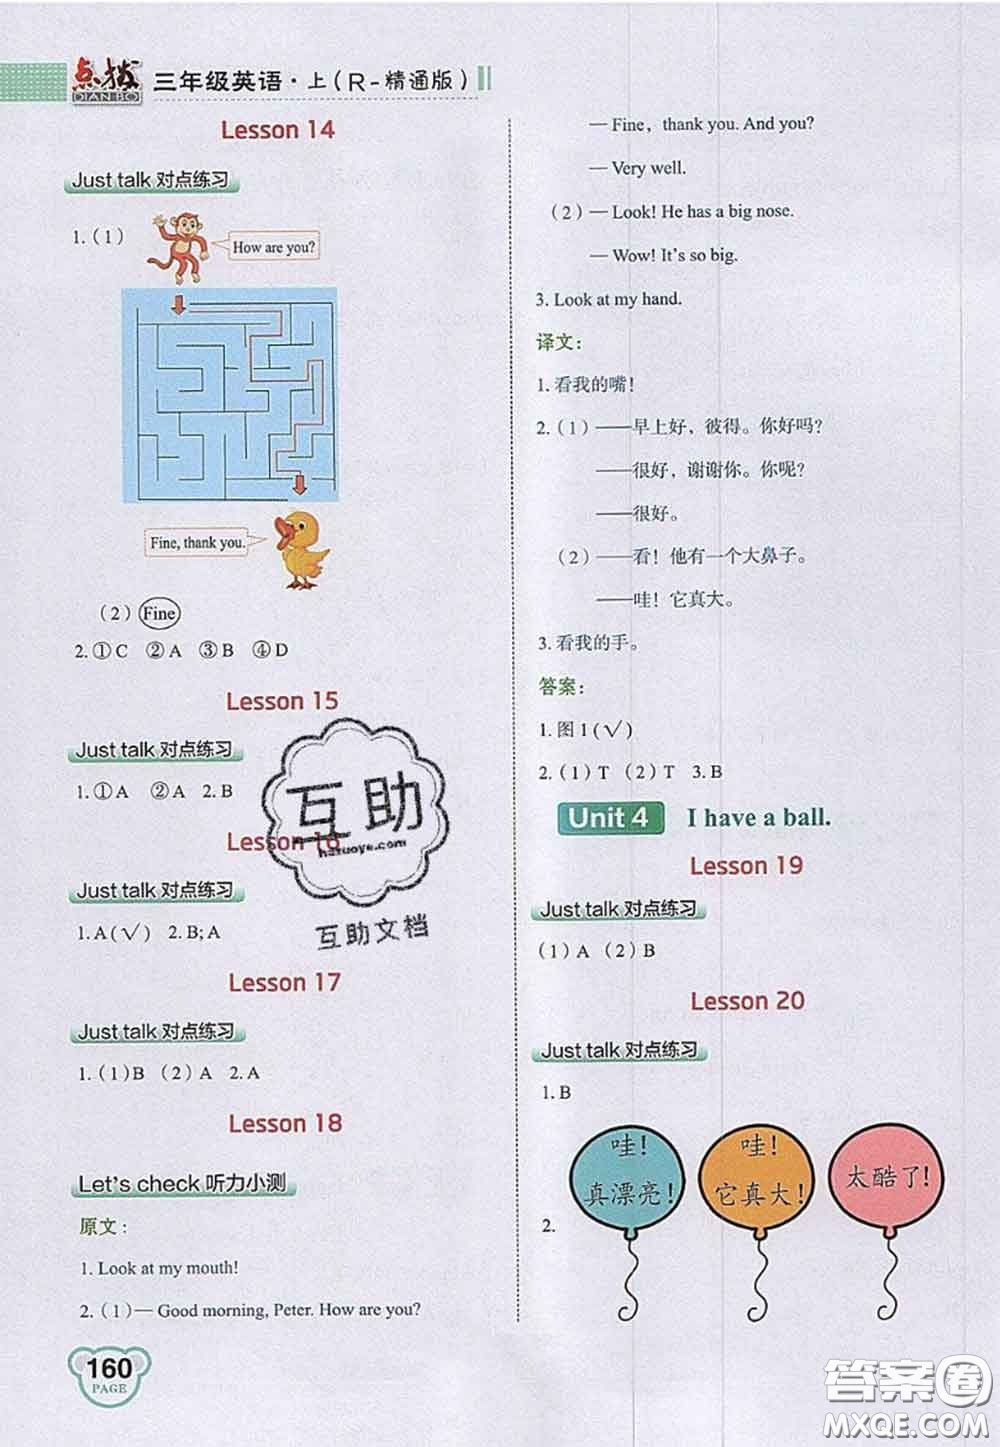 点拨 三年级英语·上(R-精通版)
DIAN BO
Lesson 14
Just talk 对点练习
1.(1)
How are you?
Fine, thank you.
(2) Fine
2. ①C ②A ③B ④D
Lesson 15
Just talk 对点练习
1. ①A ②A 2. B
Lesson 16
Just talk 对点练习
1. A(√) 2. B; A
Lesson 17
Just talk 对点练习
1. (1)B (2)A 2. A
Lesson 18
Let's check 听力小测
原文:
1. Look at my mouth!
2. (1)— Good morning, Peter. How are you?
160
PAGE
— Fine, thank you. And you?
— Very well.
(2)— Look! He has a big nose.
— Wow! It's so big.
3. Look at my hand.
译文:
1. 看我的嘴!
2. (1)——早上好,彼得。你好吗?
——很好,谢谢你。你呢?
——很好。
(2)——看!他有一个大鼻子。
——哇!它真大。
3. 看我的手。
答案:
1. 图1(√)
2. (1)T (2)T 3. B
Unit 4 I have a ball.
Lesson 19
Just talk 对点练习
(1)A (2)B
Lesson 20
Just talk 对点练习
1. B
2.
哇!
真漂亮!
哇!
它真大!
太酷了!
互助
huzuoye.com
互助文档
答案圈
MXQE.COM